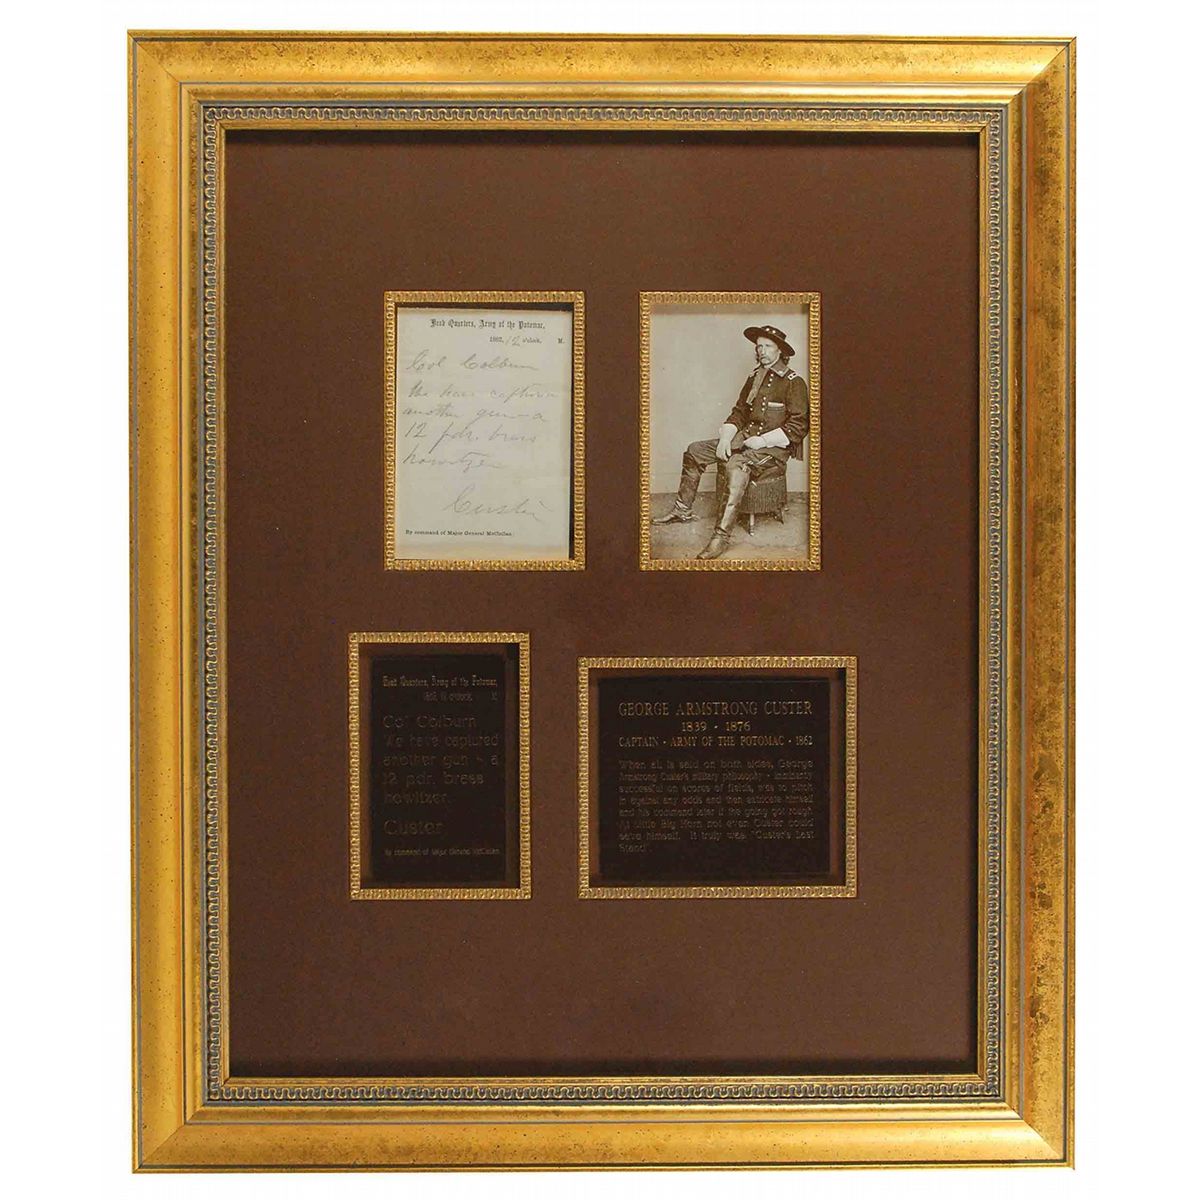 Head Quarters, Army of the Potomac,
1862, 12 o'clock, M.
Col Colburn
We have captured
another gun - a
12 pdr. brass
howitzer
Custer
By command of Major General McClellan:
Head Quarters, Army of the Potomac,
1862, 12 o'clock, M
Col Colburn
We have captured
another gun - a
12 pdr. brass
howitzer.
Custer
By command of Major General McClellan
GEORGE ARMSTRONG CUSTER
1839 - 1876
CAPTAIN - ARMY OF THE POTOMAC - 1862
When all is said on both sides, George
Armstrong Custer's military philosophy - brilliantly
successful on scores of fields, was to pitch
in against any odds and then extricate himself
and his command later if the going got rough
At Little Big Horn not even Custer could
save himself. It truly was "Custer's Last
Stand".